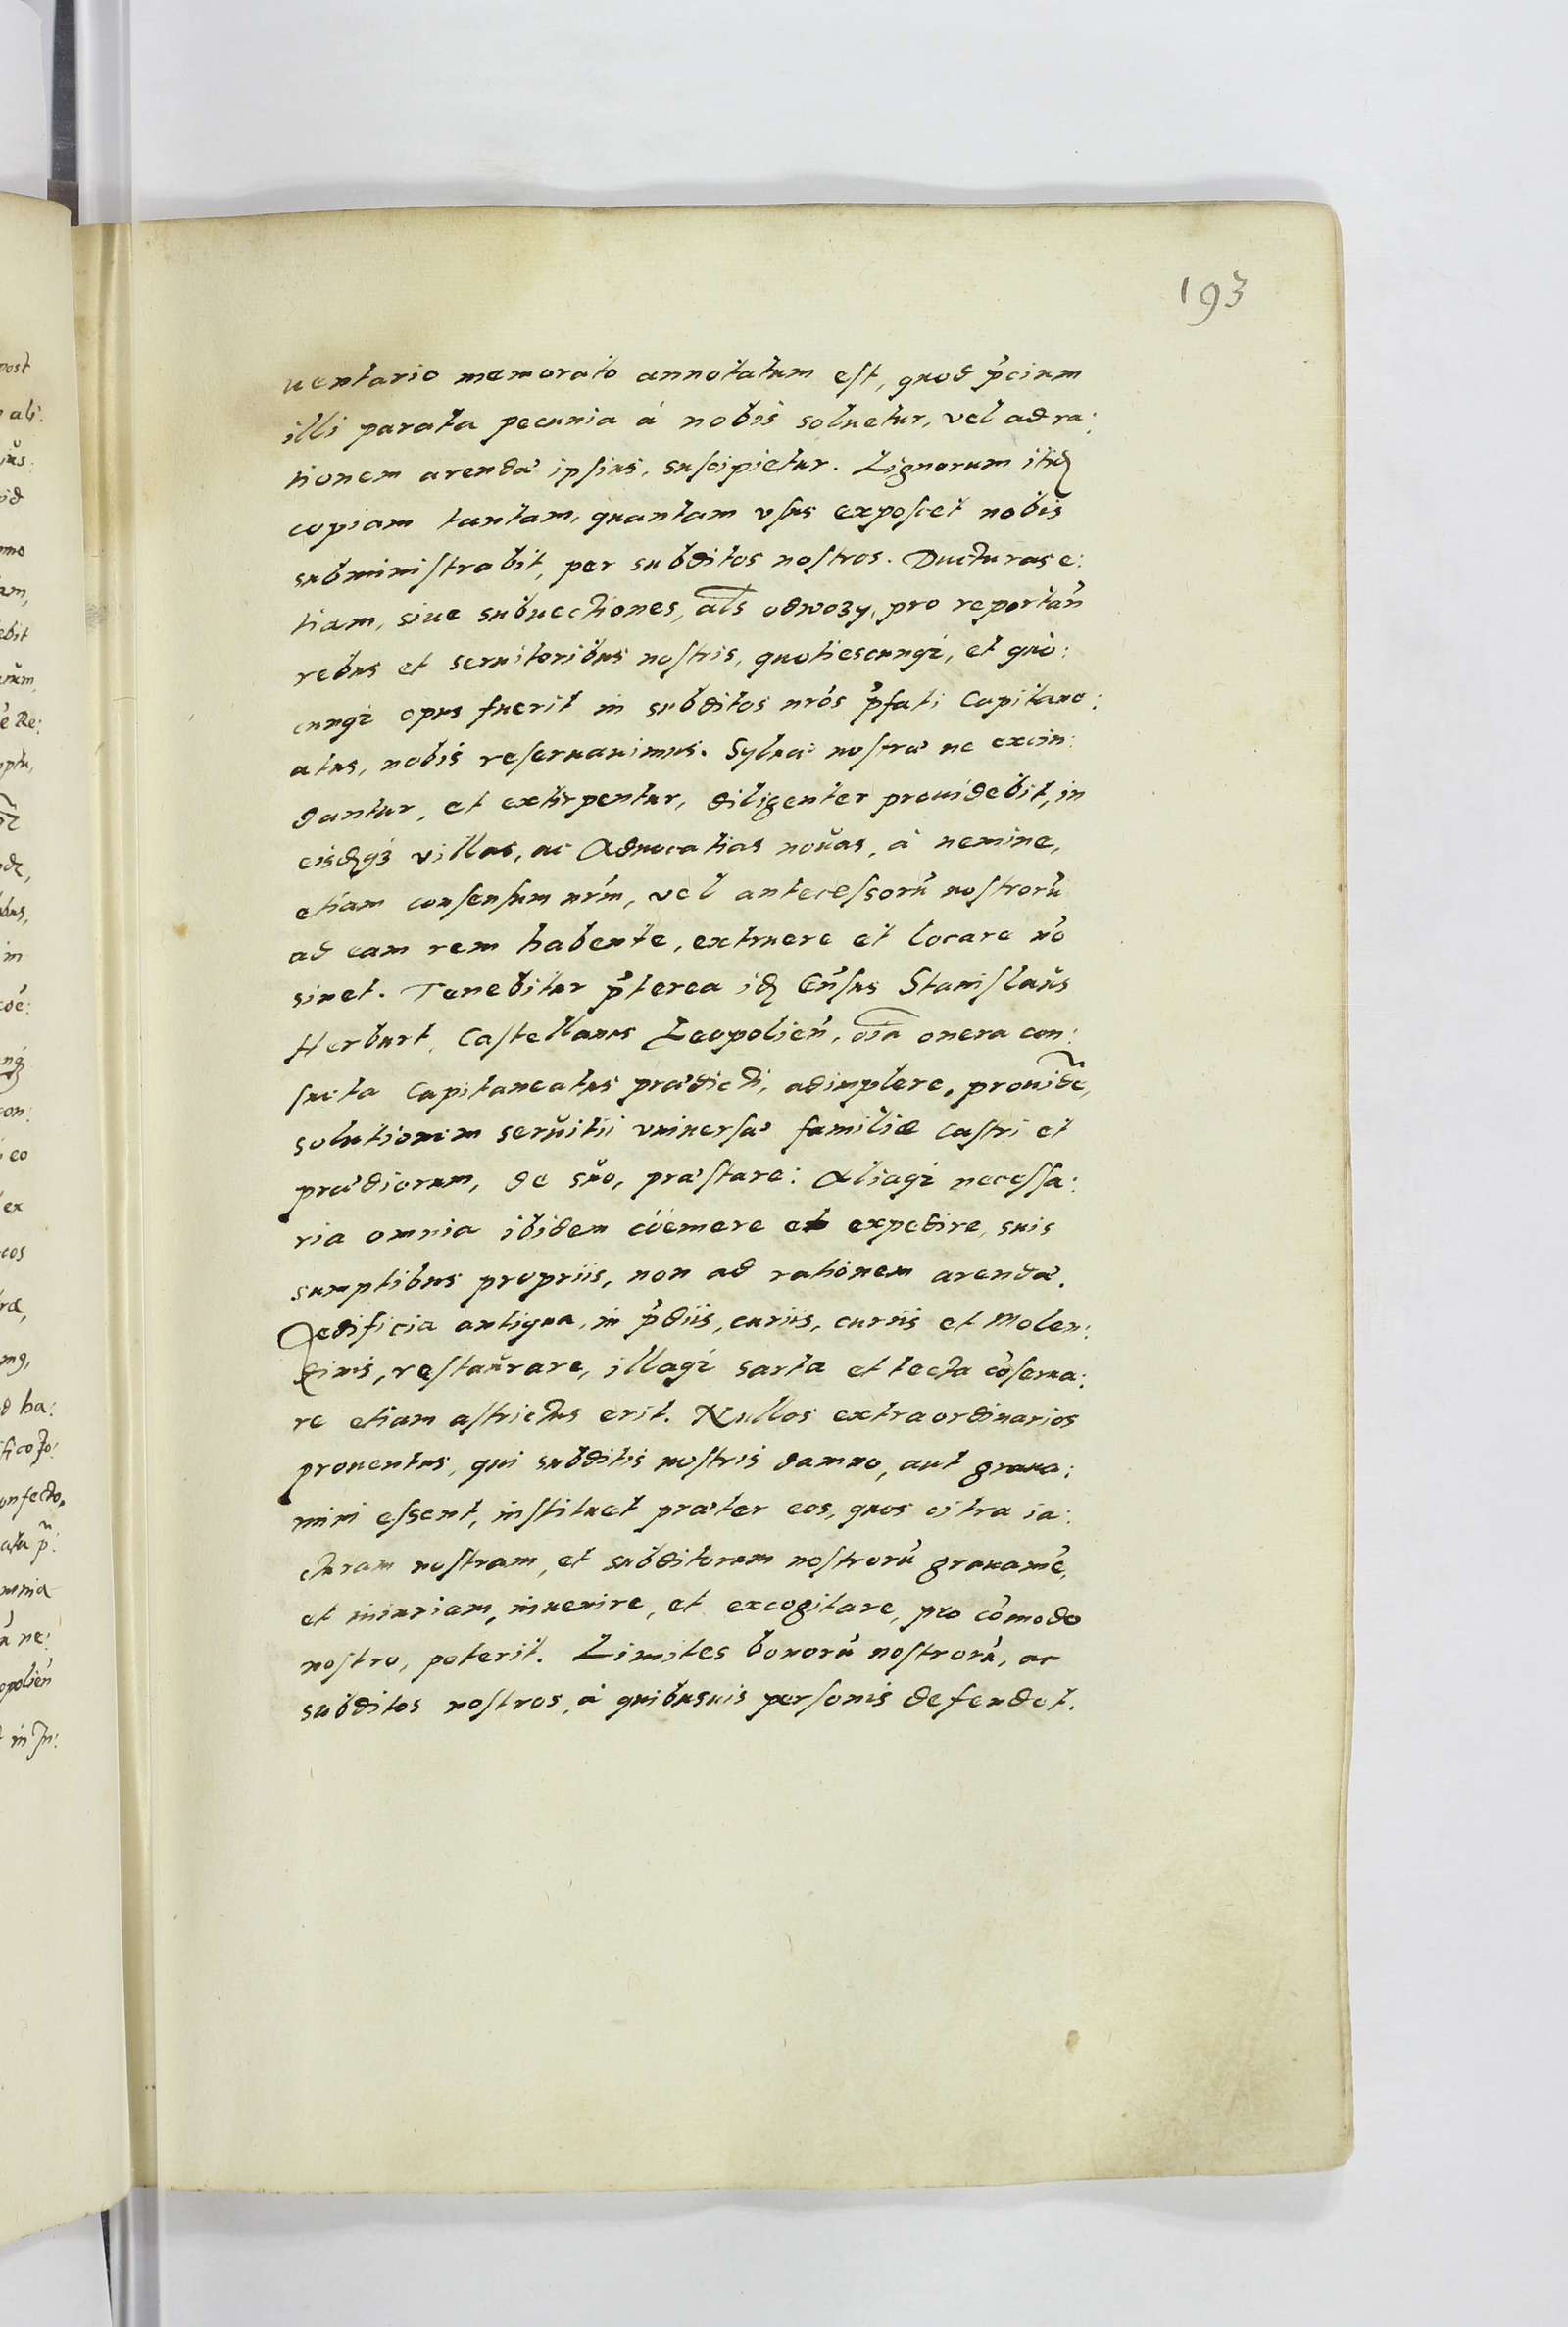 193
uentario memorato annotatum est, quod p̃cium
illi parata pecunia á nobis soluetur, vel ad ra:
tionem arendæ ipsius, suscipietur. Lignorum itid
copiam tantam, quantam vsus exposcet nobis
subministrabit, per subditos nostros. Ducturas e:
tiam, siue subuectiones, als odwozy, pro reportan̄
rebus et seruitoribus nostris, quotiescunqꝫ, et quó:
cunqꝫ opus fuerit in subditos nr̄os p̃fati Capitane:
atus, nobis reseruauimus. Syluæ nostræ ne excin:
dantur, et extirpentur, diligenter prouidebit, in
eisdqꝫ villas, ac Aduocatias nouas, à nemine,
etiam consensum nr̄m, vel antecessorū nostrorū
ad eam rem habente, extruere et locare nō
sinet. Tenebitur p̃terea id Gn̄sus Stanislaus
Herburt, Castellanus Leopolien̄, oīa onera con:
sueta Capitaneatus prædicti, adimplere, prouidē,
solutionem seruitii vniuersæ familiæ Castri et
prædiorum, de suo, præstare: Aliaqꝫ necessa:
ria omnia ibidem coëmere et expedire, suis
sumptibus propriis, non ad rationem arendæ.
Aedificia antiqua, in p̃diis, curiis, curiis et Molen:
dinis, restaurare, illaqꝫ sarta et tecta cōserua:
re etiam astrictus erit. Nullos extraordinarios
prouentus, qui subditis nostris damno, aut graua:
mini essent, instituet præter eos, quos citra ia:
cturam nostram, et subditorum nostrorū grauamē,
et iniuriam, inuenire, et excogitare, pro cōmodo
nostro, poterit. Limites bonorū nostrorū, ac
subditos nostros, à quibusuis personis defendet.